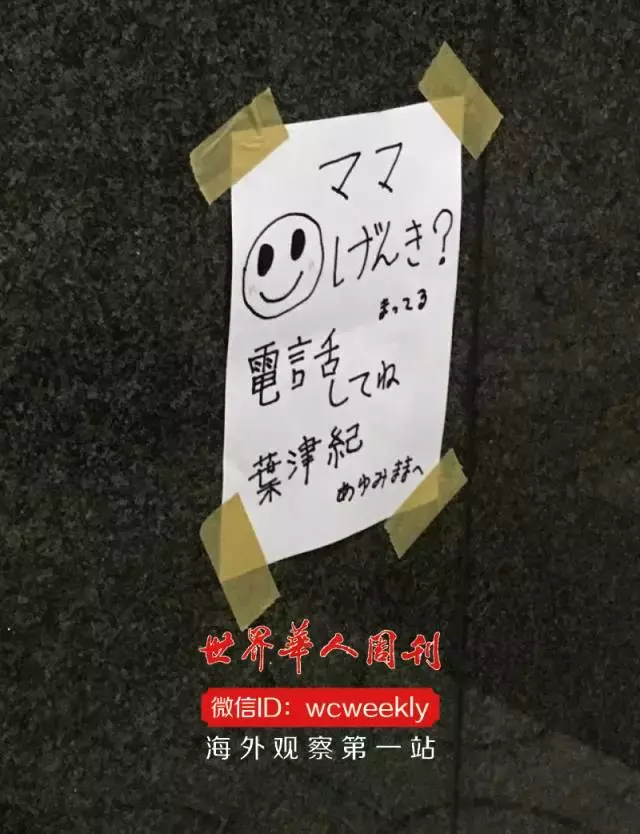 ママ
げんき？
まってる
電話
してね
葉津紀
あゆみままへ
世界華人周刊
微信ID：wcweekly
海外观察第一站